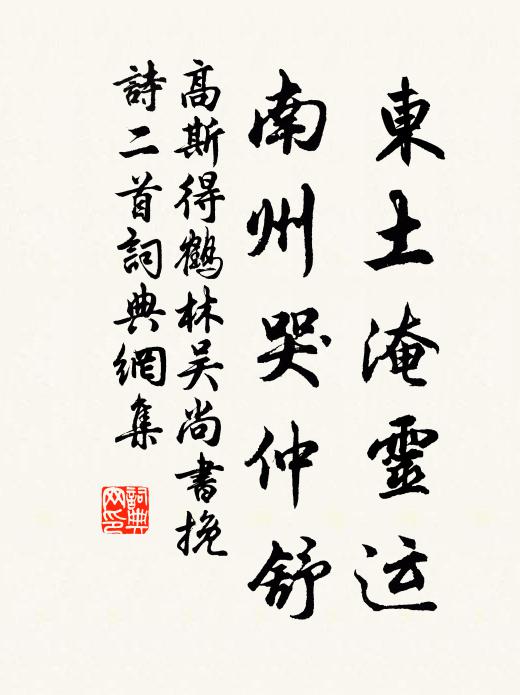 東土淹靈运
南州哭仲舒
高斯得鶴林吴尚書挽
詩二首詞典網集
詞典
网印